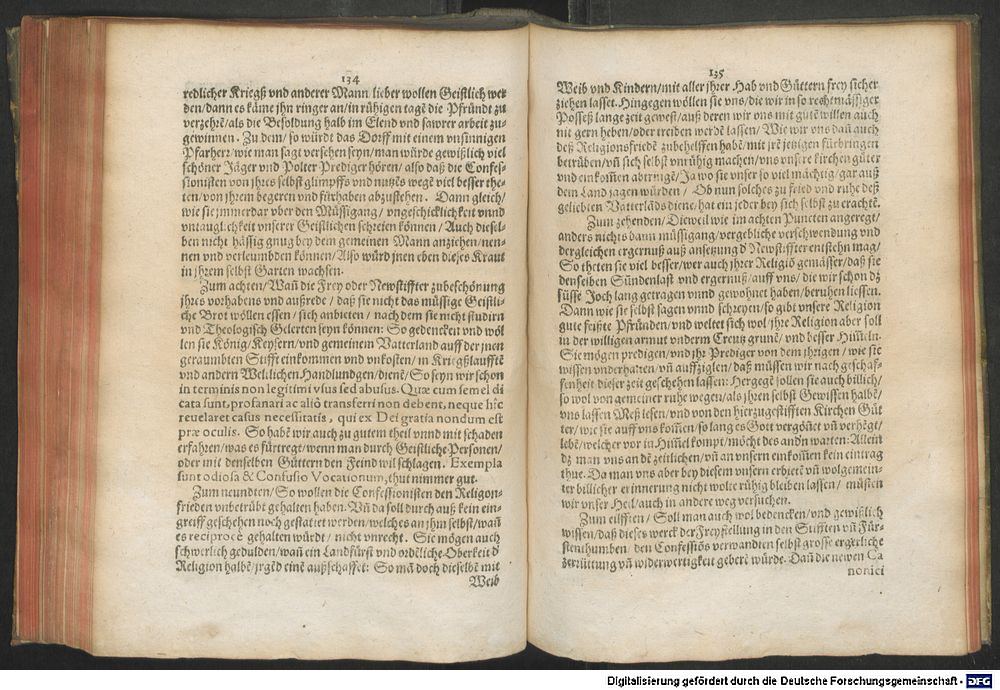 134
redlicher Kriegß vnd anderer Mann lieber wollen Geistlich wer
den/dann es käme jhn ringer an/in rühigen tagē die Pfründt zu
verzehrē/als die Besoldung halb im Elend vnd sawrer arbeit zu-
gewinnen. Zu dem/so würdt das Dorff mit einem vnsinnigen
Pfarherr/wie man sagt versehen seyn/man würde gewißlich viel
schöner Jäger vnd Polter Prediger hören/also daß die Confes-
sionisten von jhres selbst glimpffs vnd nutzēs wegē viel besser the-
ten/von jhrem begeren vnd fürhaben abzustehen. Dann gleich/
wie sie jmmerdar vber den Müssigang/vngeschicklichkeit vnnd
vntauglichkeit vnserer Geistlichen schreien können/Auch diesel-
ben nicht hässig gnug bey dem gemeinen Mann anziehen/nen-
nen vnd verleumbden können/Also würd jnen eben dieses Kraut
in jhrem selbst Garten wachsen.
Zum achten/Wañ die Frey oder Newstiffter zubeschönung
jhres vorhabens vnd außrede/daß sie nicht das müssige Geistli-
che Brot wöllen essen/sich anbieten/nach dem sie nicht studirn
vnd Theologisch Gelerten seyn können: So gedencken vnd wöl
len sie König/Keysern/vnd gemeinem Vatterland auff der jnen
geraumbten Stifft einkommen vnd vnkosten/in Kriegßlaufftē
vnd andern Weltlichen Handlundgen/dienē/So seyn wir schon
in terminis non legitimi vsus sed abusus. Quæ cum semel di
cata sunt, profanari ac aliò transferri non debent, neque hîc
reuelaret casus necessitatis, qui ex Dei gratia nondum est
præ oculis. So habē wir auch zu gutem theil vnnd mit schaden
erfahren/was es fürtregt/wenn man durch Geistliche Personen/
oder mit denselben Güttern den Feind wil schlagen. Exempla
sunt odiosa & Confusio Vocationum, thut nimmer gut.
Zum neundten/So wollen die Confessionisten den Religon-
frieden vnbetrübt gehalten haben. Vñ da soll durch auß kein ein-
greiff geschehen noch gestattet werden/welches an jhm selbst/wañ
es reciprocè gehalten würdt/nicht vnrecht. Sie mögen auch
schwerlich gedulden/wañ ein Landfürst vnd ordēliche Oberkeit đ
Religion halbē/jrgēd einē außschaffet: So mā doch dieselbē mit
Weib
135
Weib vnd Kindern/mit aller jhrer Hab vnd Güttern frey sicher
ziehen lasset. Hingegen wöllen sie vns/die wir in so rechtmässiger
Posseß lange zeit gewest/auß deren wir vns mit gutē willen auch
nit gern heben/oder treiben werdē lassen/Wie wir vns dañ auch
deß Religionsfriedē zubehelffen habē/mit jrē jetzigen fürbringen
betrüben/vñ sich selbst vnrühig machen/vns vnsre kirchen güter
vnd einkomen abtringē/Ja wo sie vnser so viel mächtig/gar auß
dem Land jagen würden/Ob nun solches zu fried vnd ruhe deß
geliebten Vatterlāds diene/hat ein jeder bey sich selbst zu erachtē.
Zum zehenden/Dieweil wie im achten Puncten angeregt/
anders nichts dann müssigang/vergebliche verschwendung vnd
dergleichen ergernuß auß ansetzung đ Newstiffter entstehn mag/
So theten sie viel besser/wer auch jhrer Religiō gemässer/daß sie
denselben Sündenlast vnd ergernuß/auff vns/die wir schon dz
süsse Joch lang getragen vnnd gewohnet haben/beruhen liessen.
Dann wie sie selbst sagen vnnd schreyen/so gibt vnsere Religion
gute feißte Pfründen/vnd weltet sich wol/jhre Religion aber soll
in der willigen armut vnderm Creutz grunē/vnd besser Himeln.
Sie mögen predigen/vnd jhr Prediger von dem jhrigen/wie sie
wissen vnderhaltē/vñ auffziglen/daß müssen wir nach geschaf-
fenheit dieser zeit geschehen lassen: Hergegē sollen sie auch billich/
so wol von gemeiner ruhe wegen/als jhren selbst Gewissen halbē/
vns lassen Meß lesen/vnd von den hierzugestifften Kirchen Güt
ter/wie sie auff vns komen/so lang es Gott vergönet vñ verhēgt/
lebē/welcher vor in Himel kompt/möcht des andn warten: Allein
dz man vns an dē zeitlichen/vñ an vnsern einkomen kein eintrag
thue. Da man vns aber bey diesem vnsern erbietē vñ wolgemein-
ter billicher erinnerung nicht wolte rühig bleiben lassen/müsten
wir vnser Heil/auch in andere weg versuchen.
Zum eilfften/Soll man auch wol bedencken/vnd gewißlich
wissen/daß dieses werck der Freystellung in den Stifften vñ Für-
stenthumben/den Confessiōs verwandten selbst grosse ergerliche
zerrüttung vñ widerwertigkeit geberē würde. Dañ die newen Ca
nonici
Digitalisierung gefördert durch die Deutsche Forschungsgemeinschaft - DFG